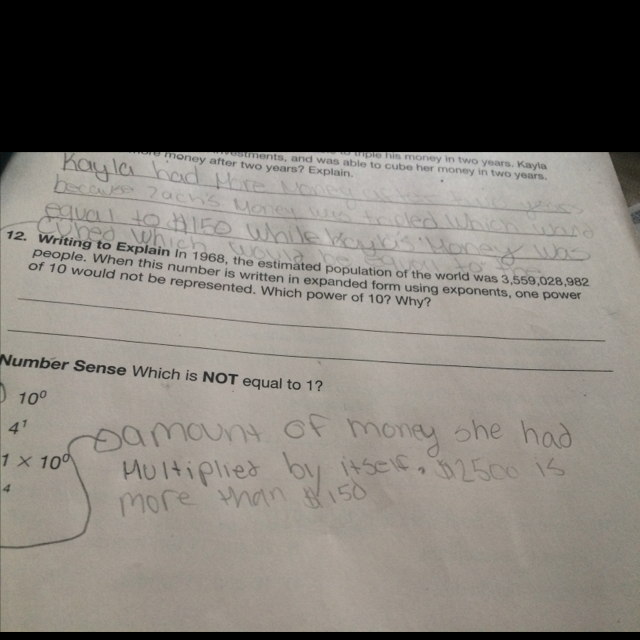 investments, and was able to triple his money in two years. Kayla
more money after two years? Explain. and was able to cube her money in two years.
Kayla had More Money
because Zach's Money was tripled which
equal to $150 While Kayla's Money was
cubed which would be equal to the
12. Writing to Explain In 1968, the estimated population of the world was 3,559,028,982
people. When this number is written in expanded form using exponents, one power
of 10 would not be represented. Which power of 10? Why?
Number Sense Which is NOT equal to 1?
10⁰
4¹
1 × 10⁰
4
amount of money she had
Multiplied by itself. $2500 is
more than $150